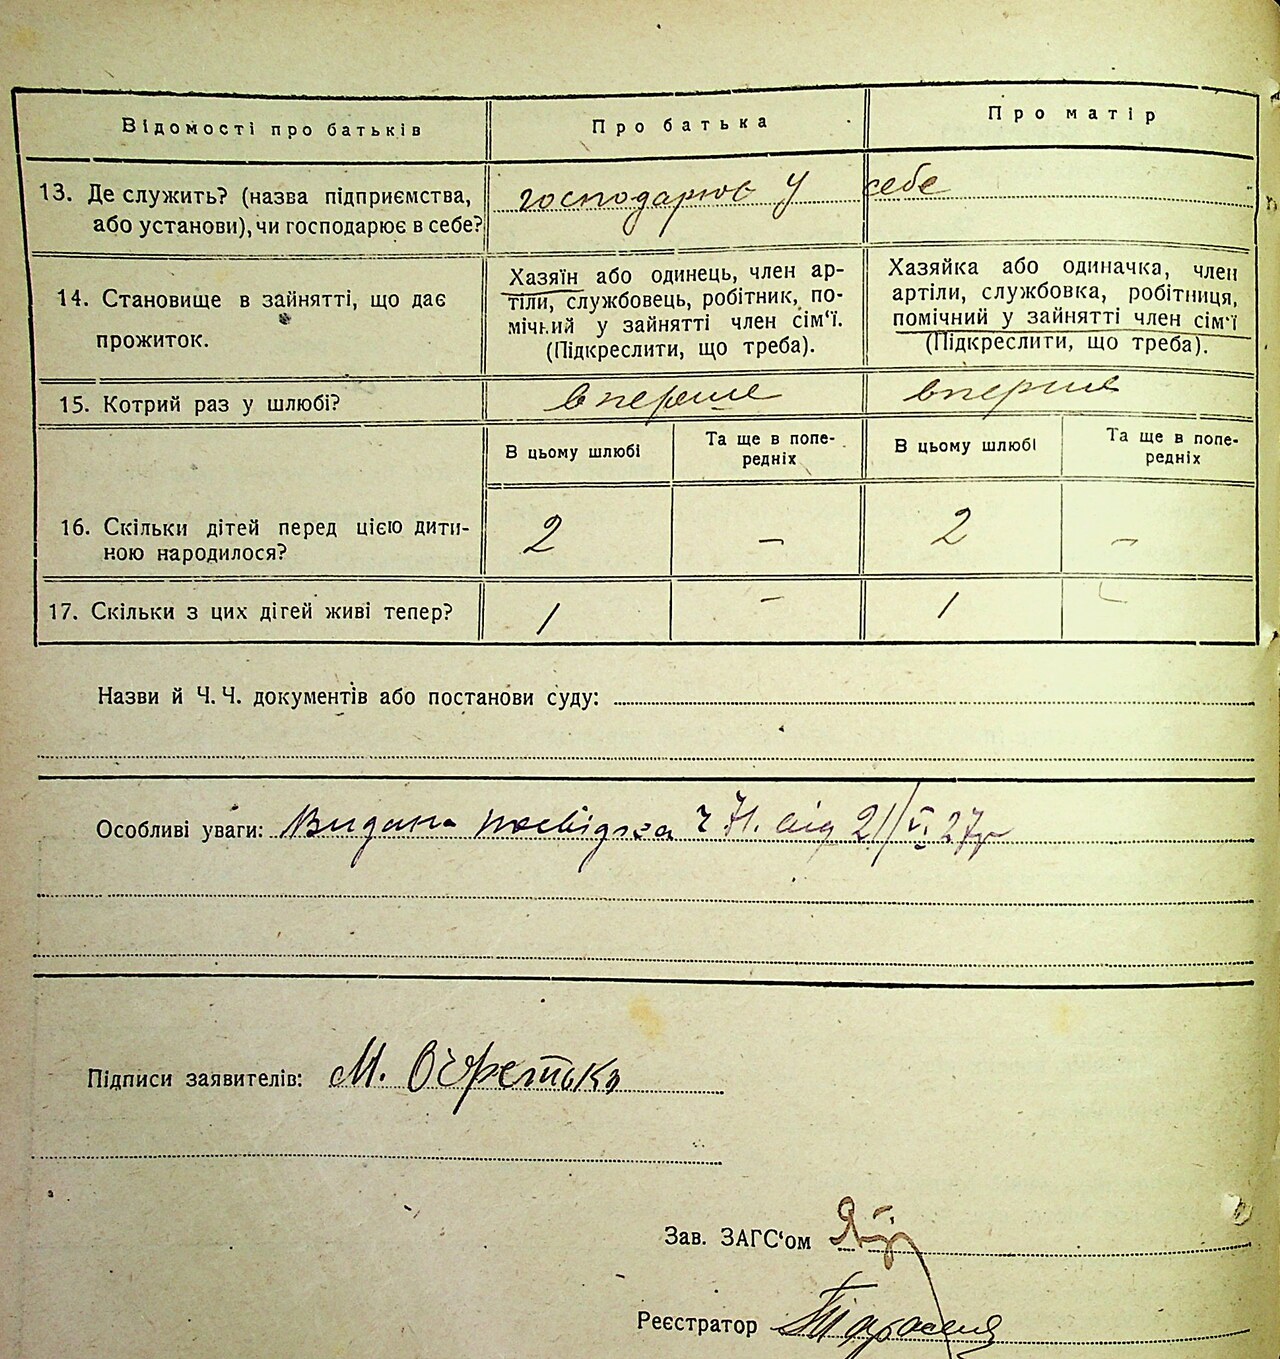 Відомості про батьків
Про батька
Про матір
13. Де служить? (назва підприємства,
або установи), чи господарює в себе?
господарює у себе
14. Становище в зайнятті, що дає
прожиток.
Хазяїн або одинець, член ар-
тіли, службовець, робітник, по-
мічний у зайнятті член сім‘ї.
(Підкреслити, що треба).
Хазяйка або одиначка, член
артіли, службовка, робітниця,
помічний у зайнятті член сім‘ї
(Підкреслити, що треба).
15. Котрий раз у шлюбі?
вперше
вперше
В цьому шлюбі
Та ще в попе-
редніх
В цьому шлюбі
Та ще в попе-
редніх
16. Скільки дітей перед цією дити-
ною народилося?
2
—
2
—
17. Скільки з цих дітей живі тепер?
1
—
1
Назви й Ч. Ч. документів або постанови суду:
Особливі уваги: Видана посвідка ч 71. від 21/VI 27р
Підписи заявителів: М.
Зав. ЗАГС‘ом
Реєстратор